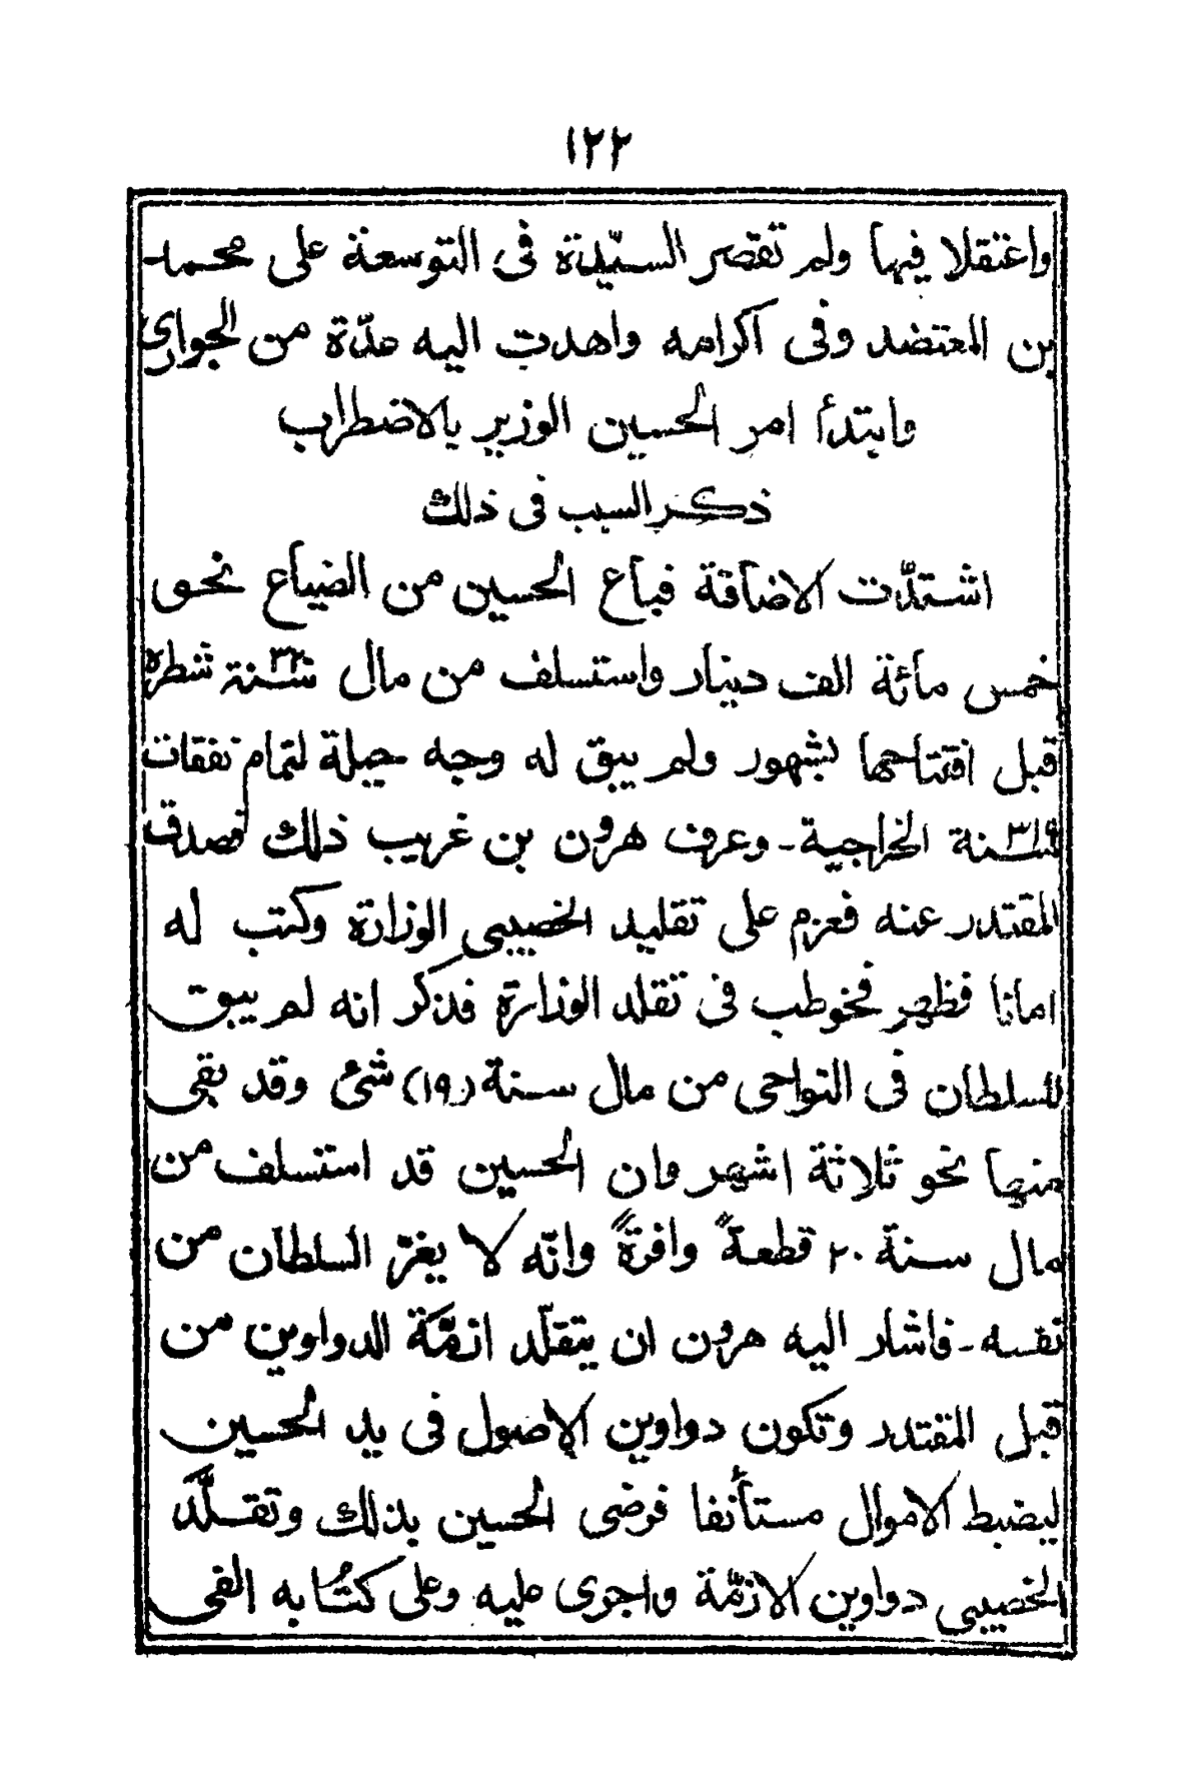 ١٢٢
واعتقلا فيها ولم تقصر السيّدة فى التوسعة على محمد
بن المعتضد وفى اكرامه واهدت اليه عدّة من الجوارى
وابتدأ امر الحسين الوزير بالاضطراب
ذكر السبب فى ذلك
اشتدّت الاضاقة فباع الحسين من الضياع نحو
خمس مائة الف دينار واستسلف من مال سنة ٣٢٠ شطره
قبل افتتاحها بشهور ولم يبق له وجه حيلة لتمام نفقات
سنة ٣١٩ الخراجية - وعرف هرون بن غريب ذلك فصدق
المقتدر عنه فعزم على تقليد الخصيبى الوزارة وكتب له
امانا فظهر فخوطب فى تقلد الوزارة فذكر انه لم يبق
للسلطان فى النواحى من مال سنة (١٩) شئ وقد بقى
منها نحو ثلاثة اشهر وان الحسين قد استسلف من
مال سنة ٢٠ قطعةً وافرةً وانّه لا يغرّ السلطان من
نفسه - فاشار اليه هرون ان يتقلّد ازمّة الدواوين من
قبل المقتدر وتكون دواوين الاصول فى يد الحسين
ليضبط الاموال مستأنفا فرضى الحسين بذلك وتقلّد
الخصيبى دواوين الازمّة واجرى عليه وعلى كتّابه الفى